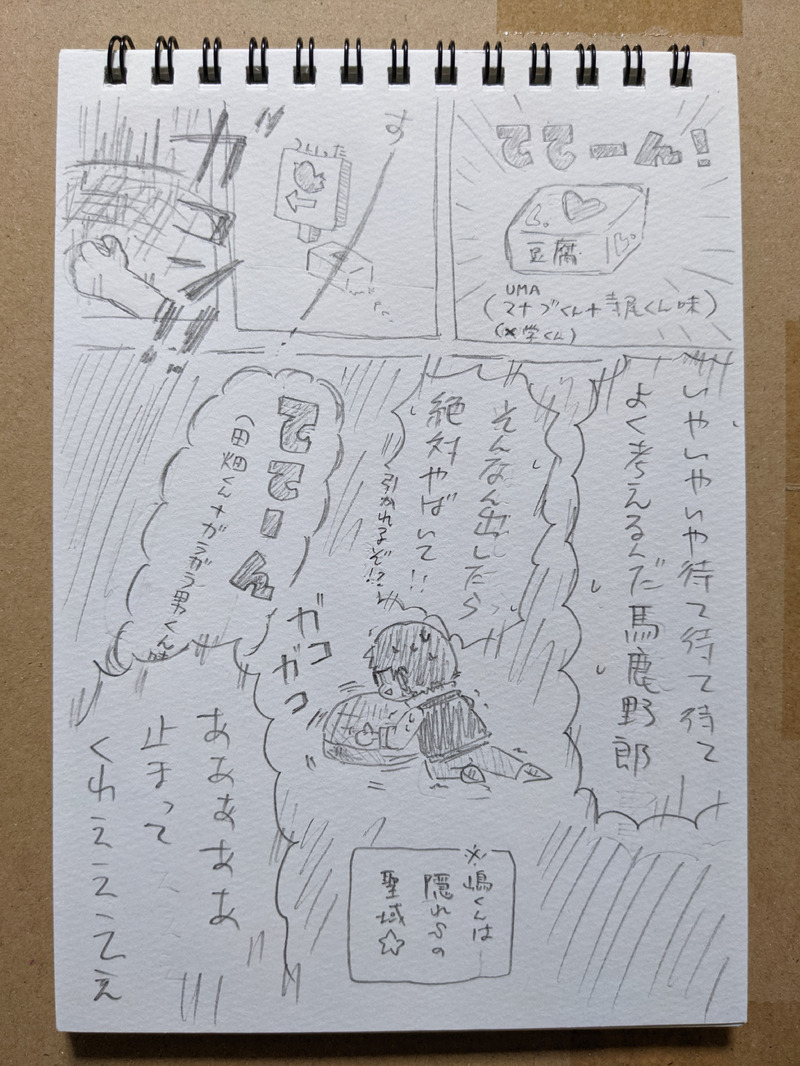 ててーん!
豆腐
UMA
(マナブくん+寺尾くん味)
(×学くん)
す
ついった
ガ
いやいやいや待て待て待て
よく考えるんだ馬鹿野郎
そんなん出したら
絶対やばいて!!
引かれるぞ!?
ててーん
(田畑くん+がうがう男くん味
ガコ
ガコ
ああああああ
止まって
くれえええええ
※嶋くんは
隠れらの
聖域☆